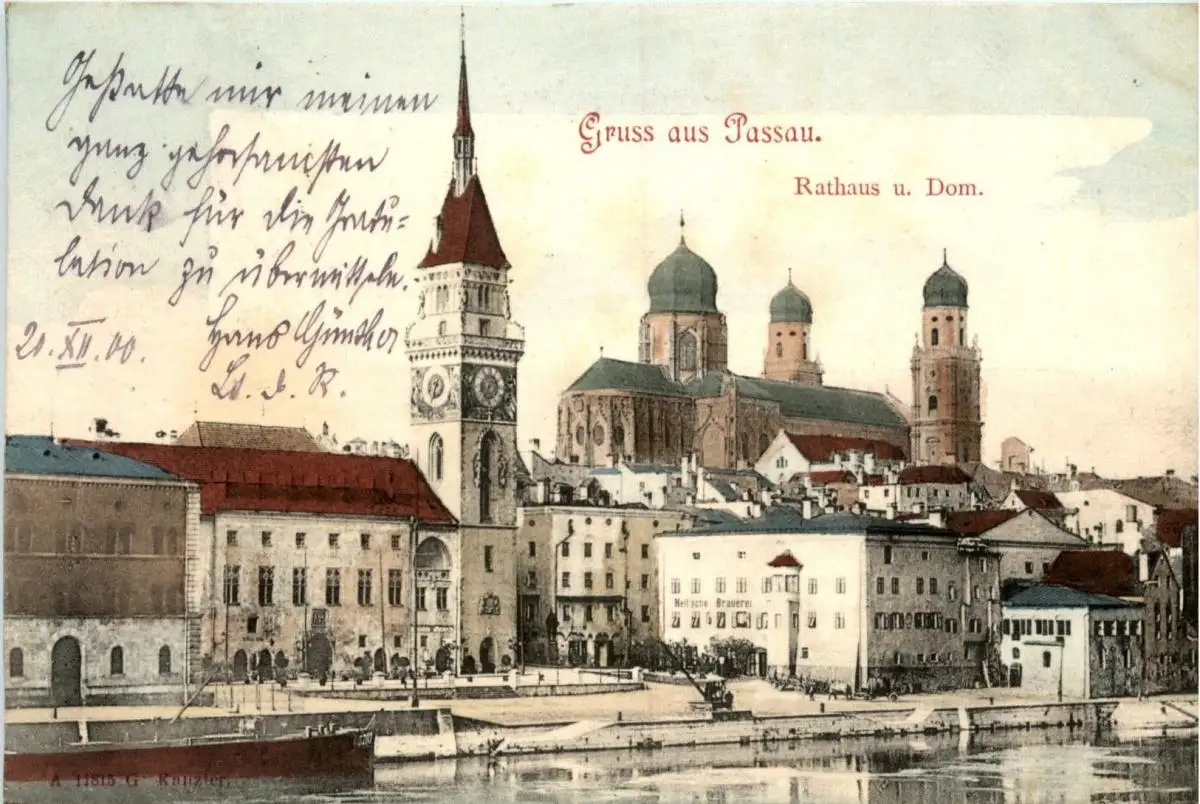 Gestatte mir meinen
ganz gehorsamsten
Dank für die Gratu=
lation zu übermitteln.
Hans Günther
Lt. d. R.
20. XII. 00.
Gruss aus Passau.
Rathaus u. Dom.
Brauerei
A 11815 G Kanzler.